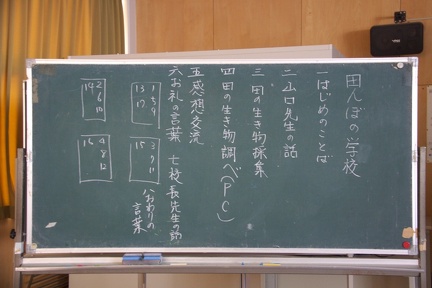 田んぼの学校
一はじめのことば
二山口先生の話
三田の生き物採集
四田の生き物調べ(PC)
五感想交流
六お礼の言葉 七校長先生の話
八おわりの言葉
13 1
5
17 9
15 3
7
11
14 2
6
10
16 4
8
12